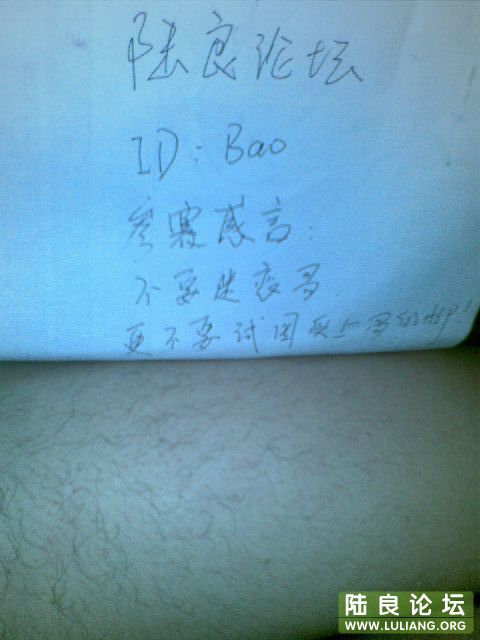 陆良论坛
ID: Bao
参赛感言:
不要迷恋哥
更不要试图爱上哥的!
陆良论坛
WWW.LULIANG.ORG